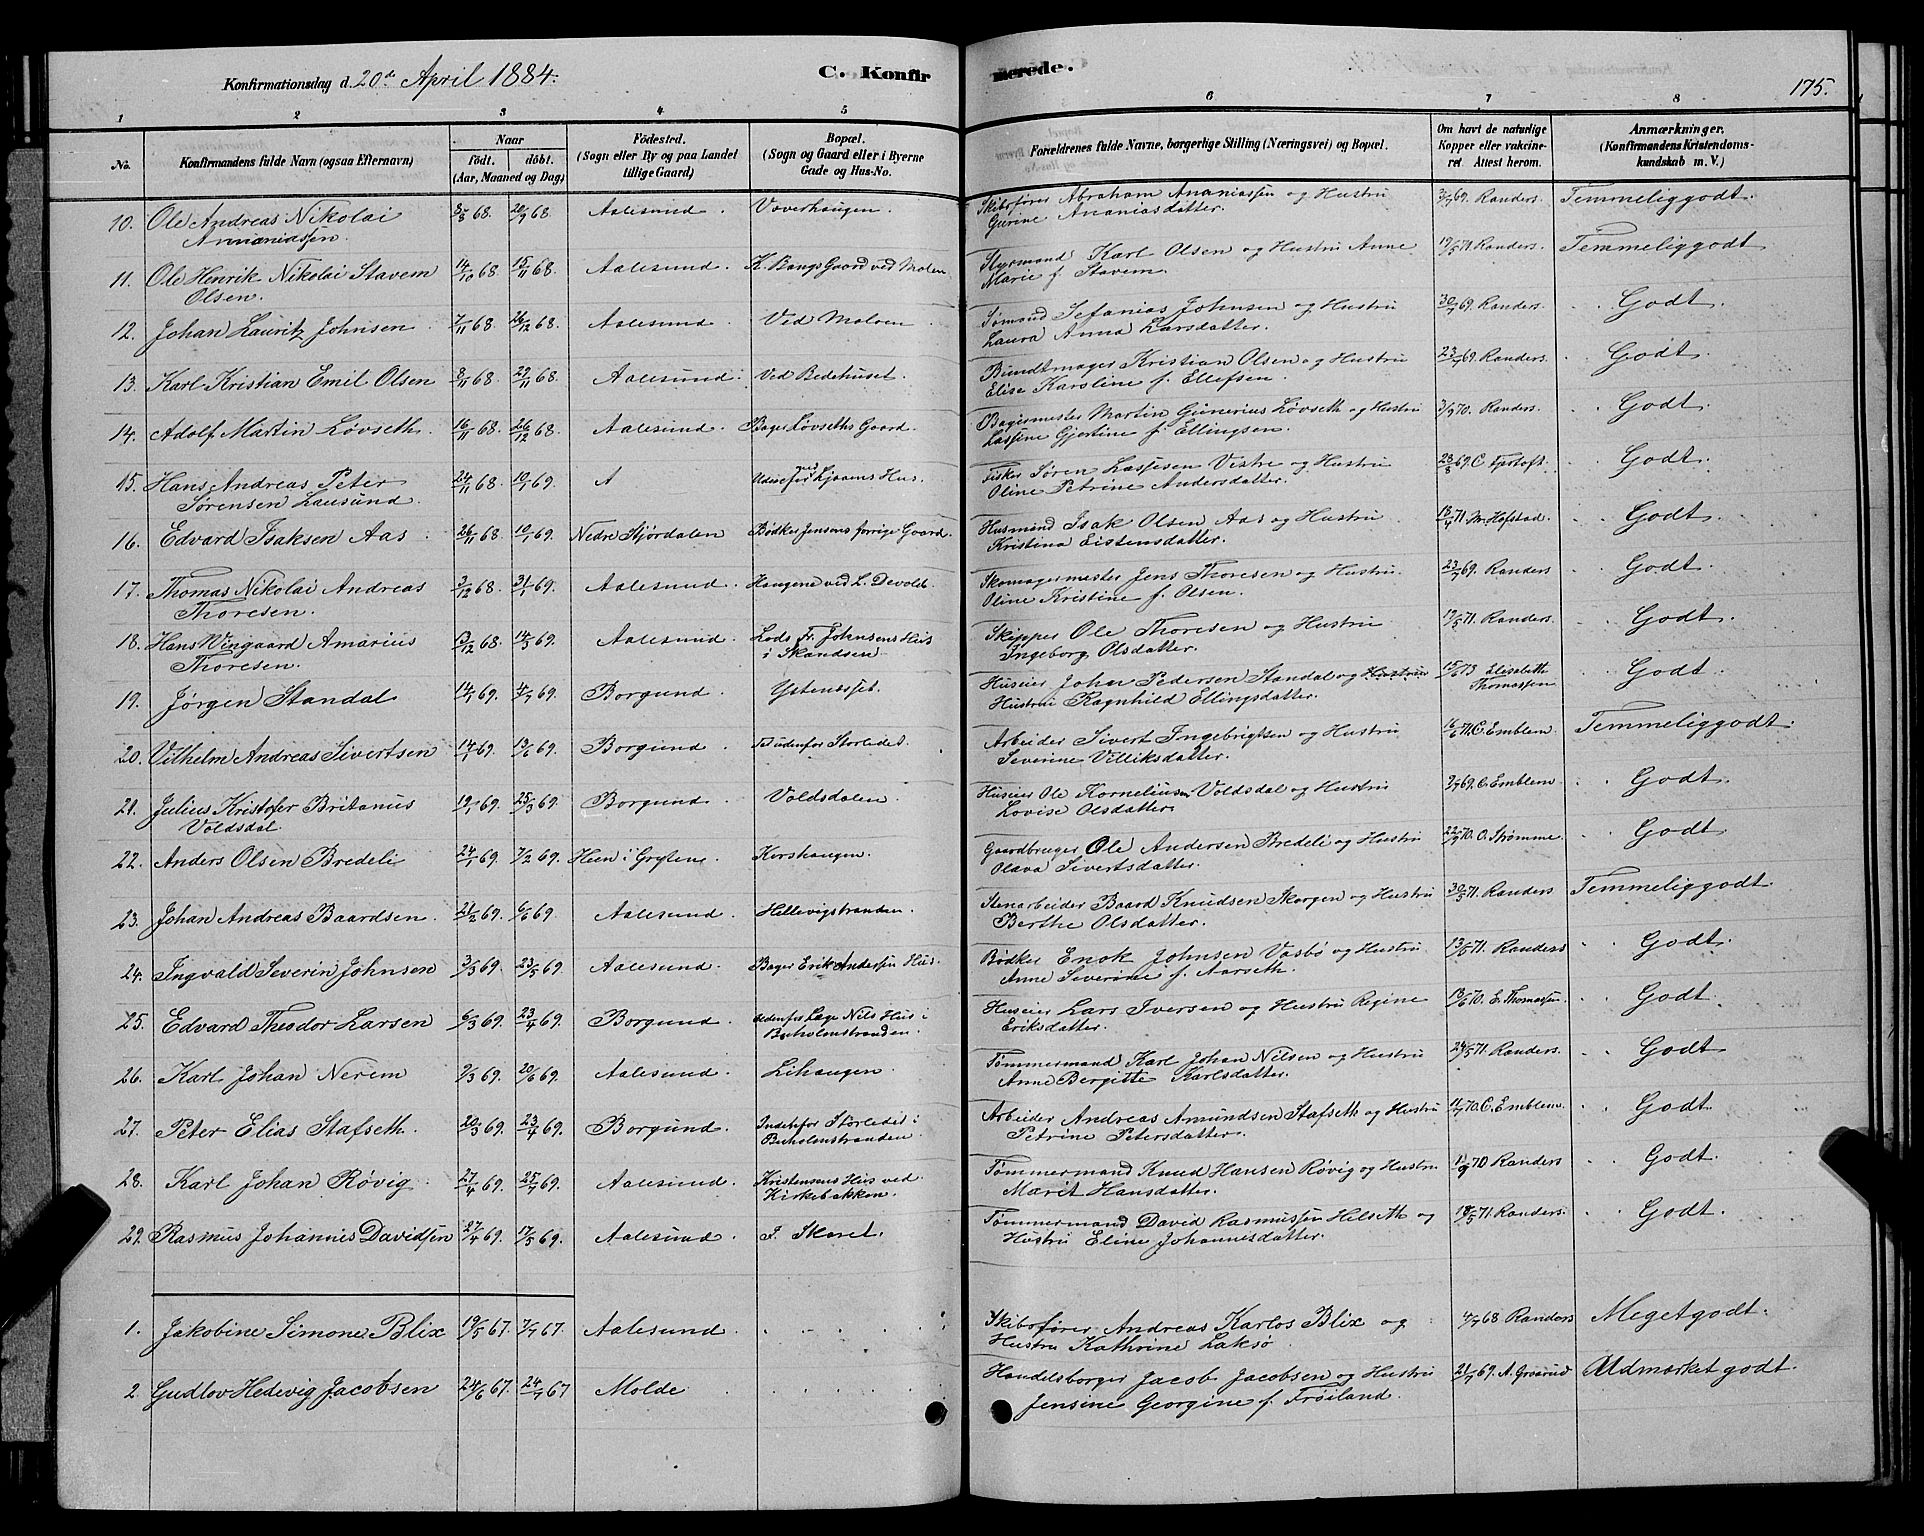 Konfirmationsdag d. 20de April 1884.
C. Konfirmerede.
175.
1 2 3 4 5 6 7 8
No.
Konfirmandens fulde Navn (ogsaa Efternavn)
Naar
födt. döbt.
(Aar, Maaned og Dag)
Födested.
(Sogn eller By og paa Landet
tillige Gaard)
Bopæl.
(Sogn og Gaard eller i Byerne
Gade og Hus-No.
Forældrenes fulde Navne, borgerlige Stilling (Næringsvei) og Bopæl.
Om havt de naturlige
Kopper eller vakcine-
ret. Attest herom.
Anmærkninger.
(Konfirmandens Kristendoms-
kundskab m. V.)
10. Ole Andreas Nikolai 68. 20/9 68. Aalesund. Voverhaugen. Skibsfører Abraham Ananiassen og Hustru 69. Randers. Temmeliggodt.
Annaniassen. Gurine Ananiasdatter.
11. Ole Henrik Nikolai Stavem 14/10 68. 15/11 68. Aalesund. K. Bangs Gaard ved Molen Styrmand Karl Olsen og Hustru Anne 19/5 71. Randers. Temmeliggodt
Olsen. Marie f. Stavem.
12. Johan Lauritz Johnsen 7/11 68. 26/12 68. Aalesund Ved Molven Sømand Sefanias Johnsen og Hustru 30/7 69. Randers. Godt.
Laura Anna Larsdatter.
13. Karl Kristian Emil Olsen 8/11 68. 29/11 68. Aalesund. Ved Bedehuset. Bundtmager Kristian Olsen og Hustru 23/7 69. Randers. Godt.
Elise Karoline f. Ellefsen.
14. Adolf Martin Løvseth. 16/11 68. 26/12 68. Aalesund Bager Løvseths Gaard. Bagermester Martin Gunerius Løvseth og Hustru 3/9 70. Randers. Godt.
Lassine Gjertine f. Ellingsen.
15. Hans Andreas Peter 24/11 68. 10/1 69. A Hus. Fisker Søren Lassesen Vestre og Hustru 28/8 69. C Fjørtoft. Godt.
Sørensen Lausund. Oline Petrine Andersdatter.
16. Edvard Isaksen Aas 26/11 68. 10/1 69. Nedre Stjørdalen Bødker Jensens forrige Gaard. Husmand Isak Olsen Aas og Hustru 13/4 71. Hofstad. Godt.
Kristina Eistensdatter.
17. Thomas Nikolai Andreas 3/12 68. 31/1 69. Aalesund. Haugene ved L. Devold. Skomagermester Jens Thoresen og Hustru 23/7 69. Randers Godt.
Thoresen. Oline Kristine f. Olsen.
18. Hans Wingaard Amarius 13/12 68. 14/3 69. Aalesund. Lods Fr. Johnsens Hus Skipper Ole Thoresen og Hustru 19/5 71. Randers. Godt.
Thoresen. i Skandsen. Ingeborg Olsdatter.
19. Jørgen Standal 14/1 69. 4/7 69. Borgund. Ystenesset. Huseier John Pedersen Standal og Hustru 15/6 73 Elisabeth Godt.
Hustru Ragnhild Ellingsdatter. Thomassen
20. Vilhelm Andreas Sivertsen 14/1 69. 13/6 69. Borgund. udenfor Storledet. Arbeider Sivert Ingebrigtsen og Hustru 16/6 71. C. Emblem. Temmeliggodt.
Severine Villiksdatter.
21. Julius Kristofer Britanus 19/1 69. 25/3 69. Borgund. Voldsdalen. Huseier Ole Korneliusen Voldsdal og Hustru 69. C. Emblem. Godt.
Voldsdal. Lovise Olsdatter.
22. Anders Olsen Bredeli 24/1 69. 7/2 69. Heen i Grytene. Korshaugen. Gaardbruger Ole Andersen Bredeli og Hustru 22/9 70. O. Strømme. Godt
Olava Sivertsdatter.
23. Johan Andreas Baardsen. 21/2 69. 6/6 69. Aalesund Hellevigstranden. Stenarbeider Baard Knudsen Skorgen og Hustru 30/5 71. Randers Temmeliggodt
Berthe Olsdatter.
24. Ingvald Severin Johnsen 3/3 69. 23/5 69. Aalesund. Bager Erik Andersens Hus. Bødker Enok Johnsen Vasbø og Hustru 13/5 71. Randers Godt.
Anne Severine f. Aarseth.
25. Edvard Theodor Larsen 6/3 69. 23/4 69. Borgund. Udenfor Lage Nils Hus i Huseier Lars Iversen og Hustru Regine 13/6 70. E. Thomassen. Godt
Buholmstranden. Eriksdatter.
26. Karl Johan Nerem 9/3 69. 20/6 69. Aalesund. Lihaugen. Tømmermand Karl Johan Nilsen og Hustru 24/5 71. Randers. Godt
Anne Bergitte Karlsdatter.
27. Peter Elias Stafseth. 20/3 69. 23/4 69. Borgund. Indenfor Storledet i Arbeider Andreas Amundsen Stafseth og Hustru 11/7 70. C. Emblem. Godt
Buholmstranden. Petrine Petersdatter.
28. Karl Johan Røvig 27/4 69. 25/7 69. Aalesund. Kristensens Hus ved Tømmermand Knud Hansen Røvig og Hustru 70 Randers Godt.
Kirkebakken. Marit Hansdatter.
29. Rasmus Johannes Davidsen 27/4 69. 17/5 69. Aalesund. F. Skaret. Tømmermand David Rasmussen Helseth og 71. Randers. Godt.
Hustru Eline Johannesdatter.
1. Jakobine Simone Blix 19/5 67. 7/7 67. Aalesund. Skibsfører Andreas Karlos Blix og 4/7 68 Randers Megetgodt.
Hustru Kathrine Laksø.
2. Gudlov Hedevig Jacobsen 24/6 67. 24/7 67 Molde Handelsborger Jacob Jacobsen og Hustru 21/7 69. A. Grøsrud Udmærket godt.
Jensine Georgine f. Frøiland.